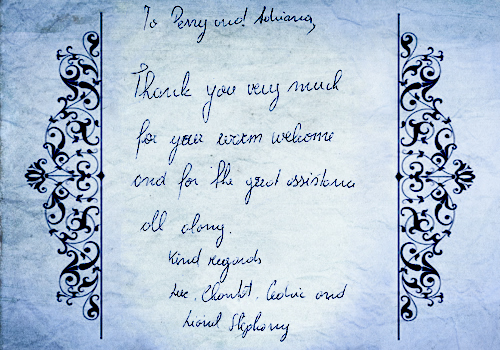 To Perry and Adriana,
Thank you very much
for your warm welcome
and for the great assistance
all along.
Kind regards
Luc, Chantal, Cedric and
Lionel Stéphany